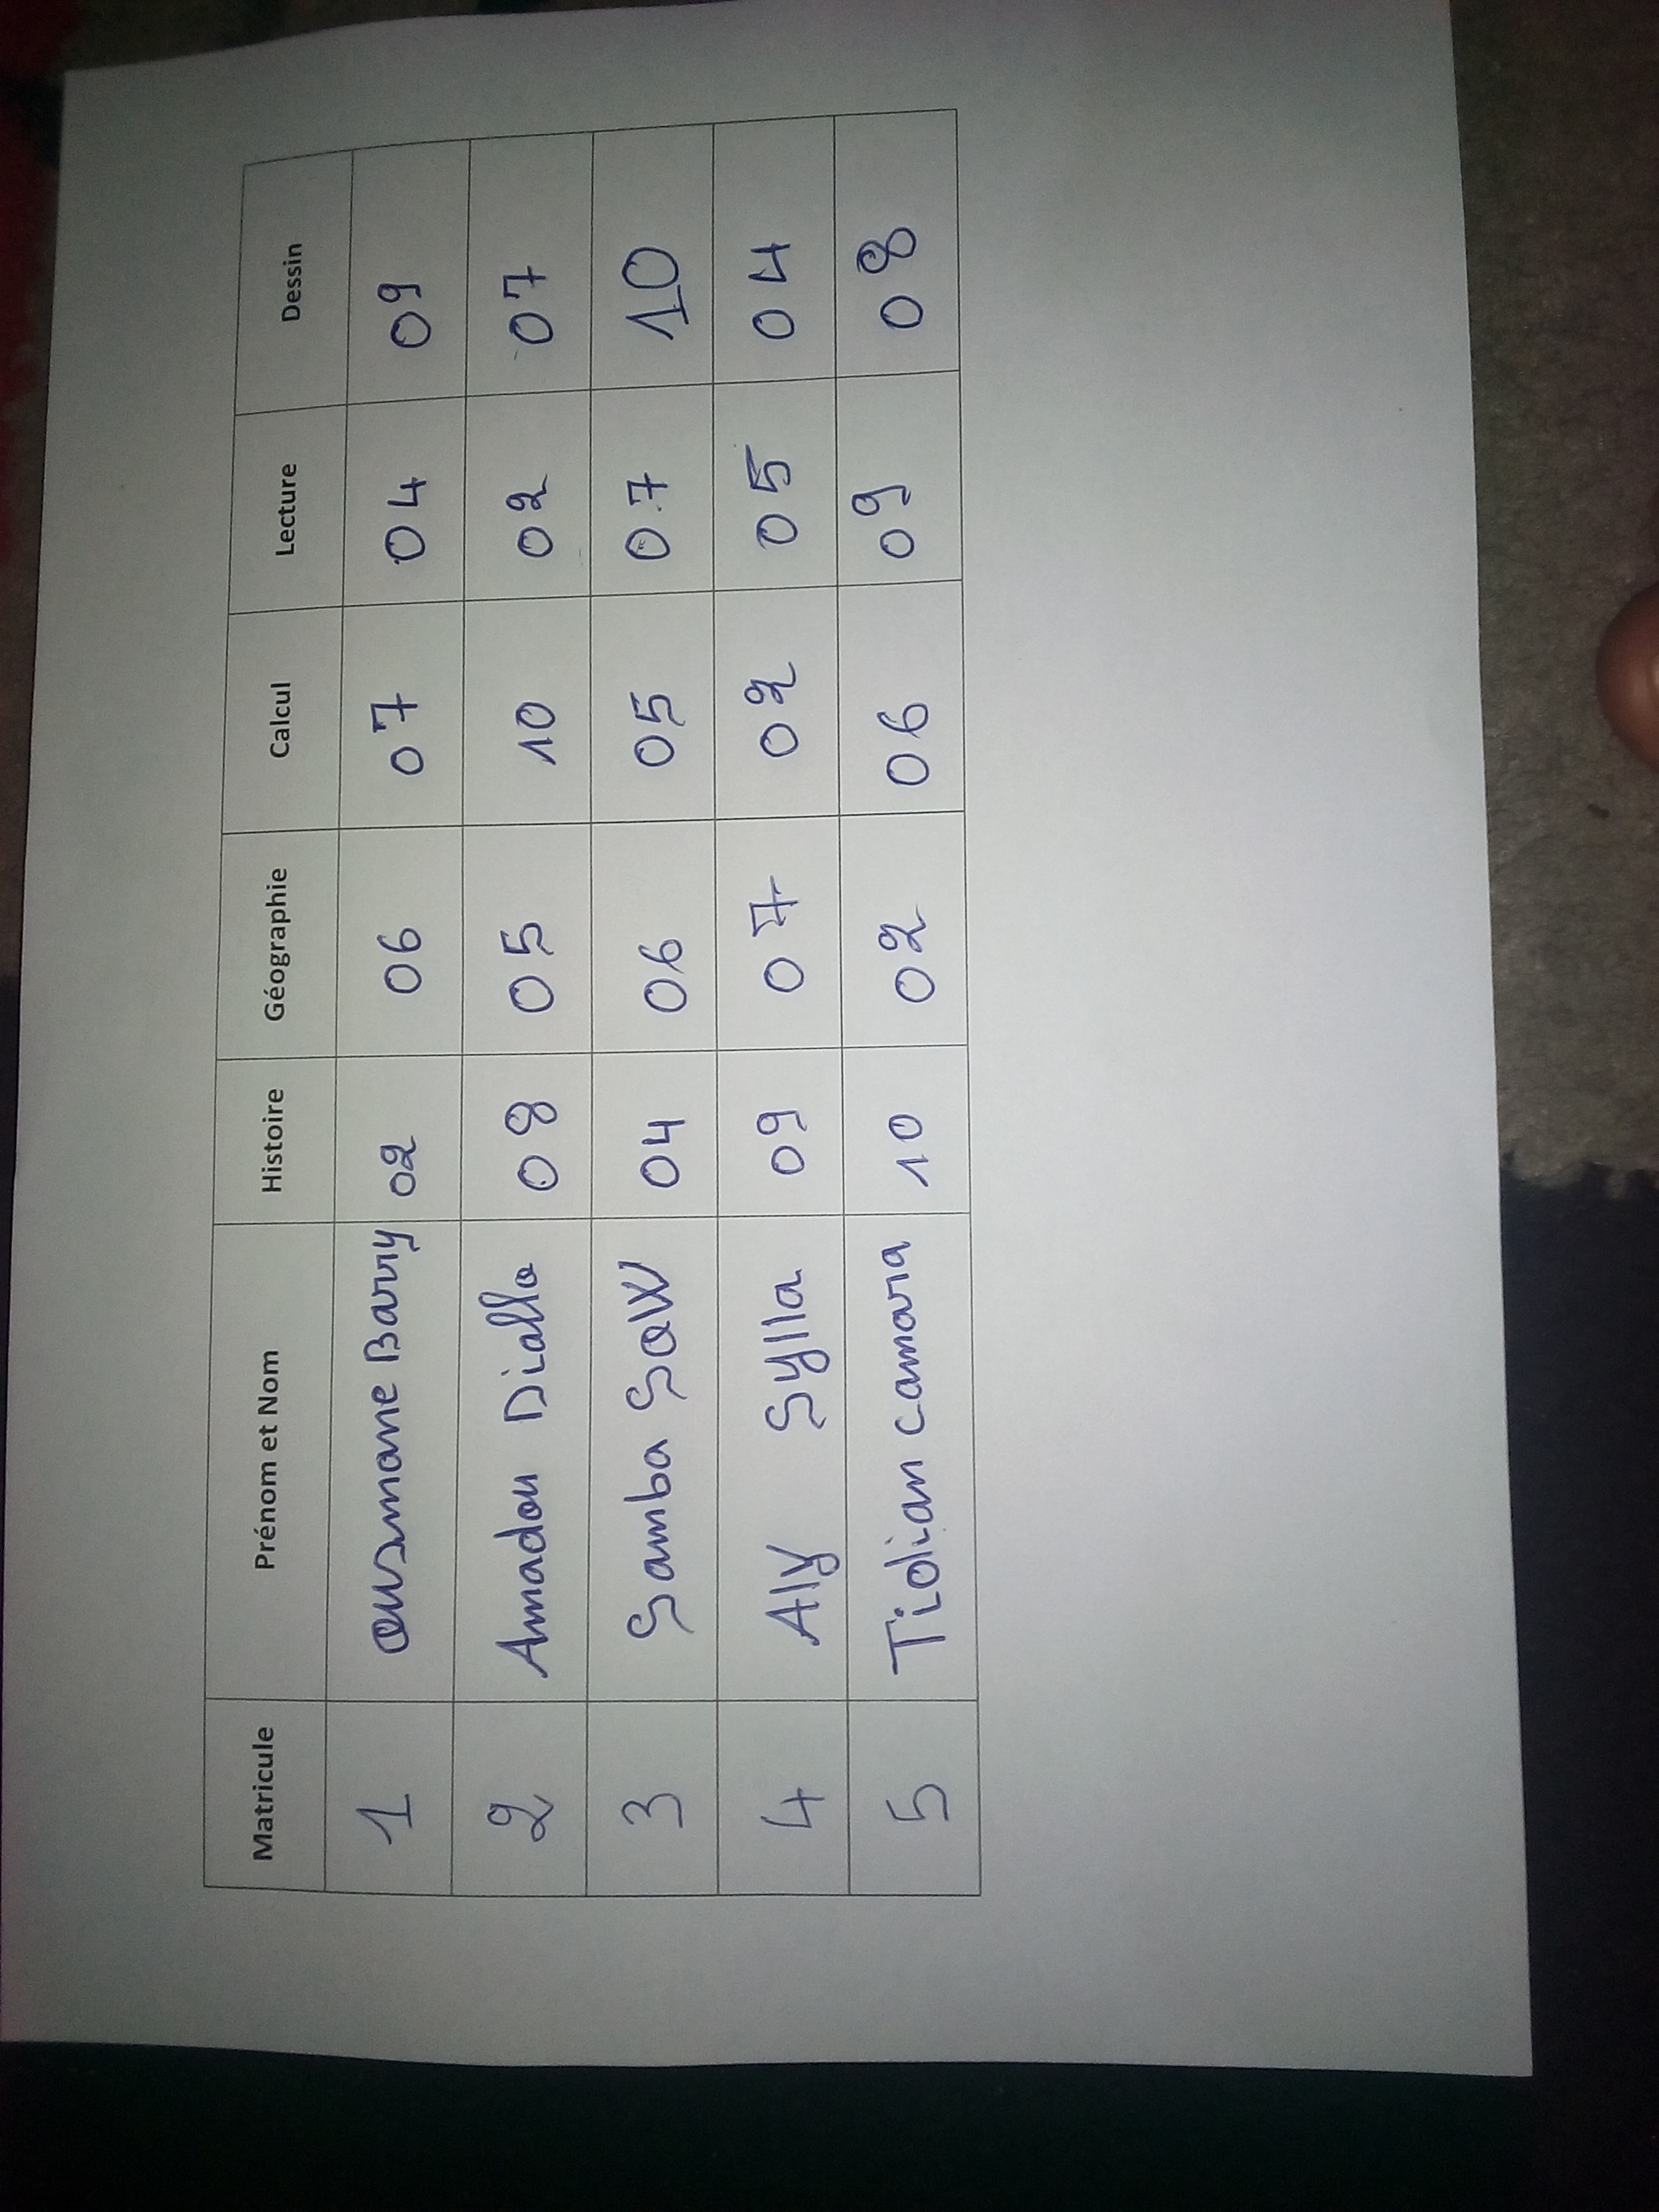 Matricule Prénom et Nom Histoire Géographie Calcul Lecture Dessin
1 Ousmane Barry 02 06 07 04 09
2 Amadou Diallo 08 05 10 02 07
3 Samba Sow 04 06 05 07 10
4 Aly Sylla 09 07 02 05 04
5 Tidian camara 10 02 06 09 08